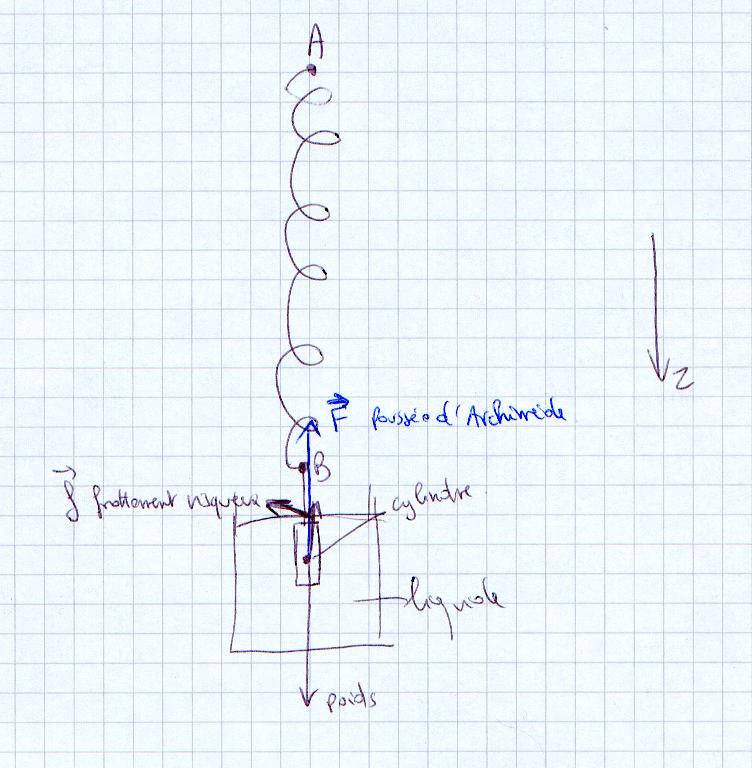 A
F poussée d'Archimède
B
f frottement visqueux
cylindre
liquide
z
poids